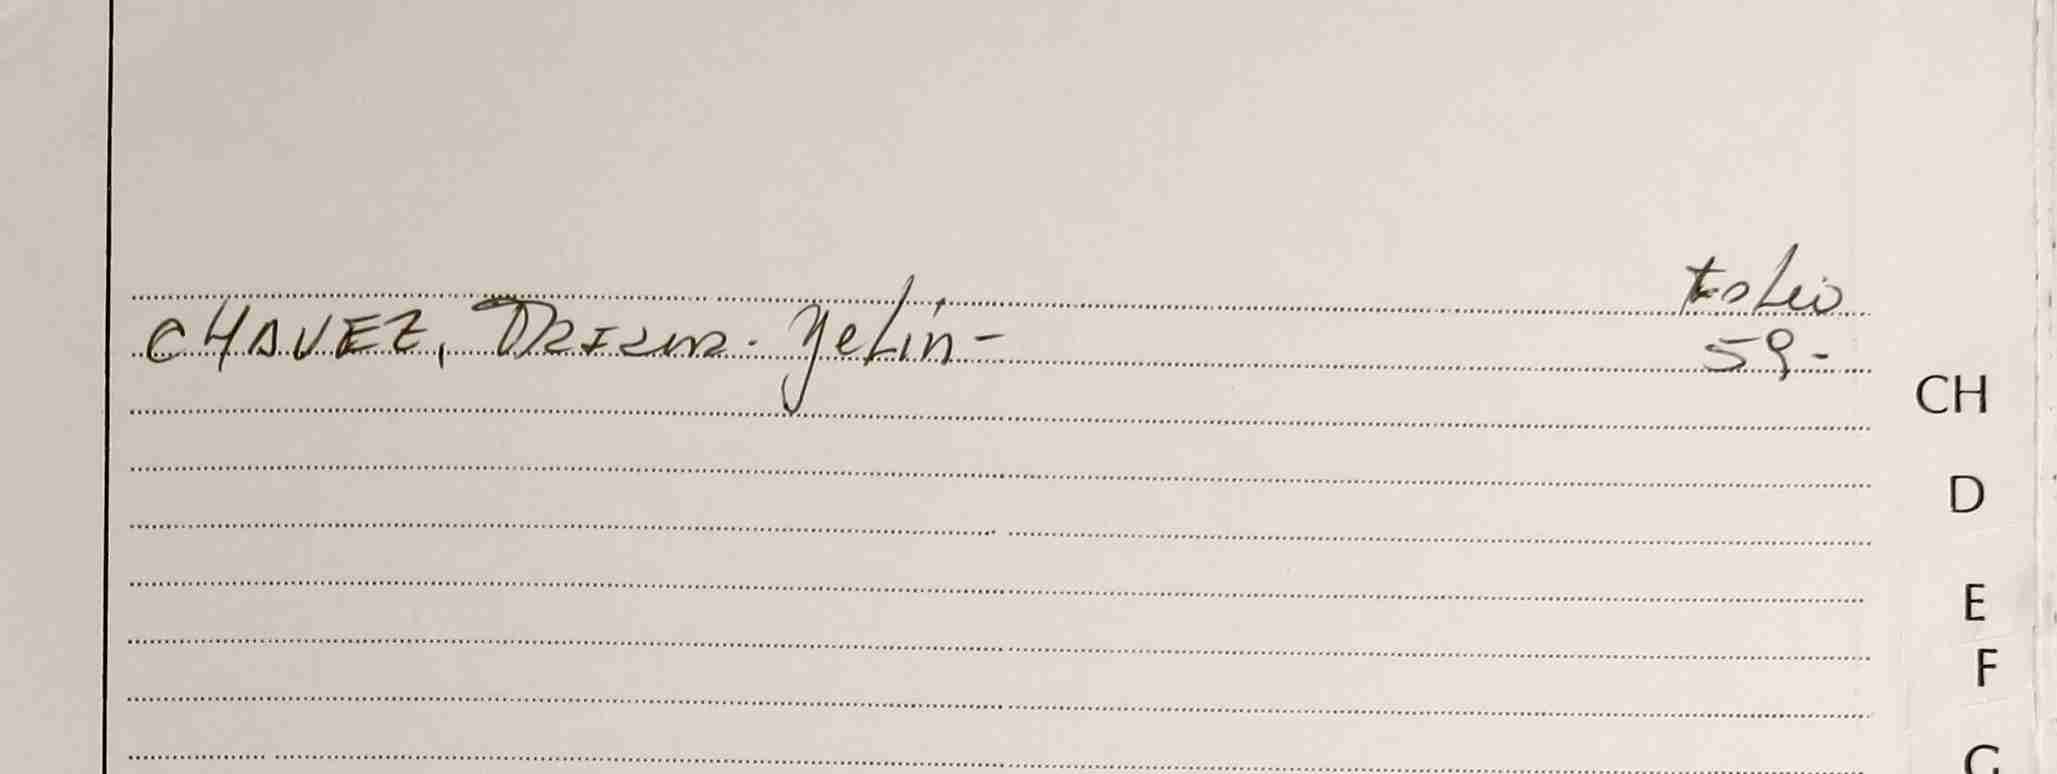 Folio
CHAVEZ, Yelin-
59.-
CH
D
E
F
G